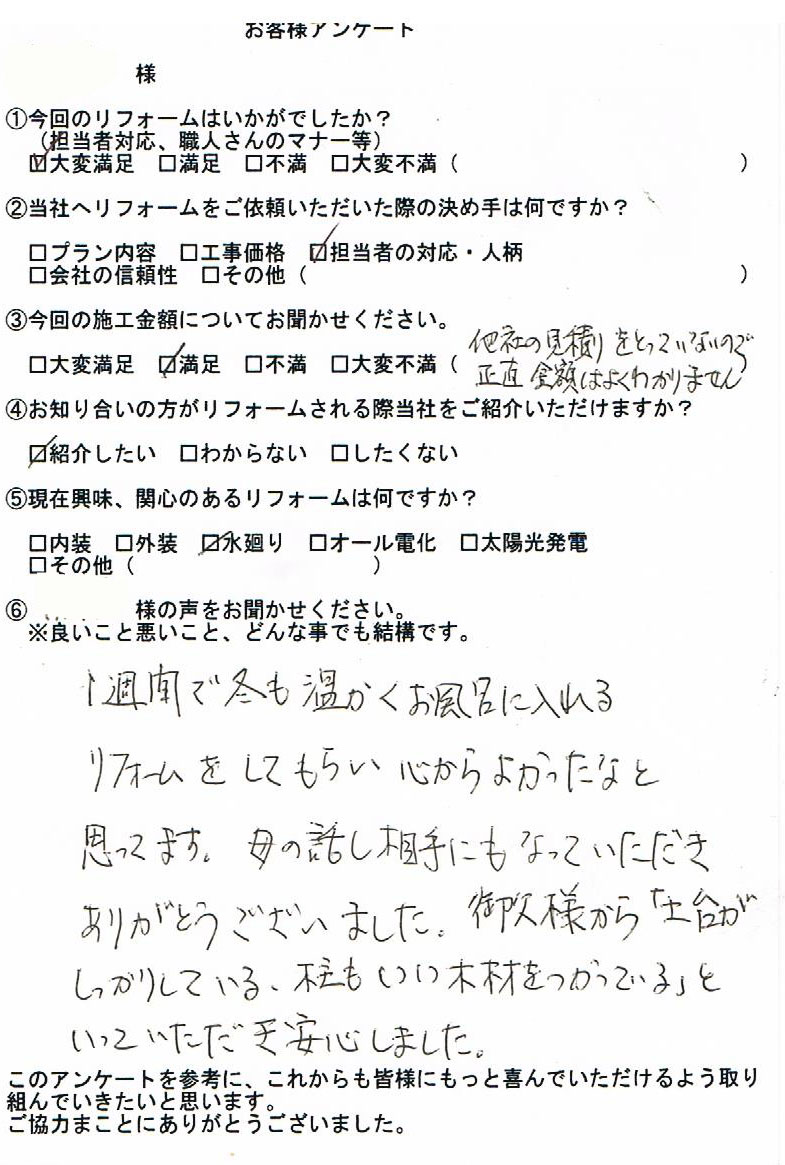 お客様アンケート
様
①今回のリフォームはいかがでしたか？
（担当者対応、職人さんのマナー等）
☑大変満足 □満足 □不満 □大変不満（ ）
②当社へリフォームをご依頼いただいた際の決め手は何ですか？
□プラン内容 □工事価格 ☑担当者の対応・人柄
□会社の信頼性 □その他（ ）
③今回の施工金額についてお聞かせください。
他社の見積りをとっていないので
□大変満足 ☑満足 □不満 □大変不満（ 正直金額はよくわかりません
④お知り合いの方がリフォームされる際当社をご紹介いただけますか？
☑紹介したい □わからない □したくない
⑤現在興味、関心のあるリフォームは何ですか？
□内装 □外装 ☑水廻り □オール電化 □太陽光発電
□その他（ ）
⑥ 様の声をお聞かせください。
※良いこと悪いこと、どんな事でも結構です。
1週間で冬も温かくお風呂に入れる
リフォームをしてもらい心からよかったなと
思ってます。母の話し相手にもなっていただき
ありがとうございました。様から「土台が
しっかりしている、柱もいい木材をつかっている」と
いっていただき安心しました。
このアンケートを参考に、これからも皆様にもっと喜んでいただけるよう取り
組んでいきたいと思います。
ご協力まことにありがとうございました。